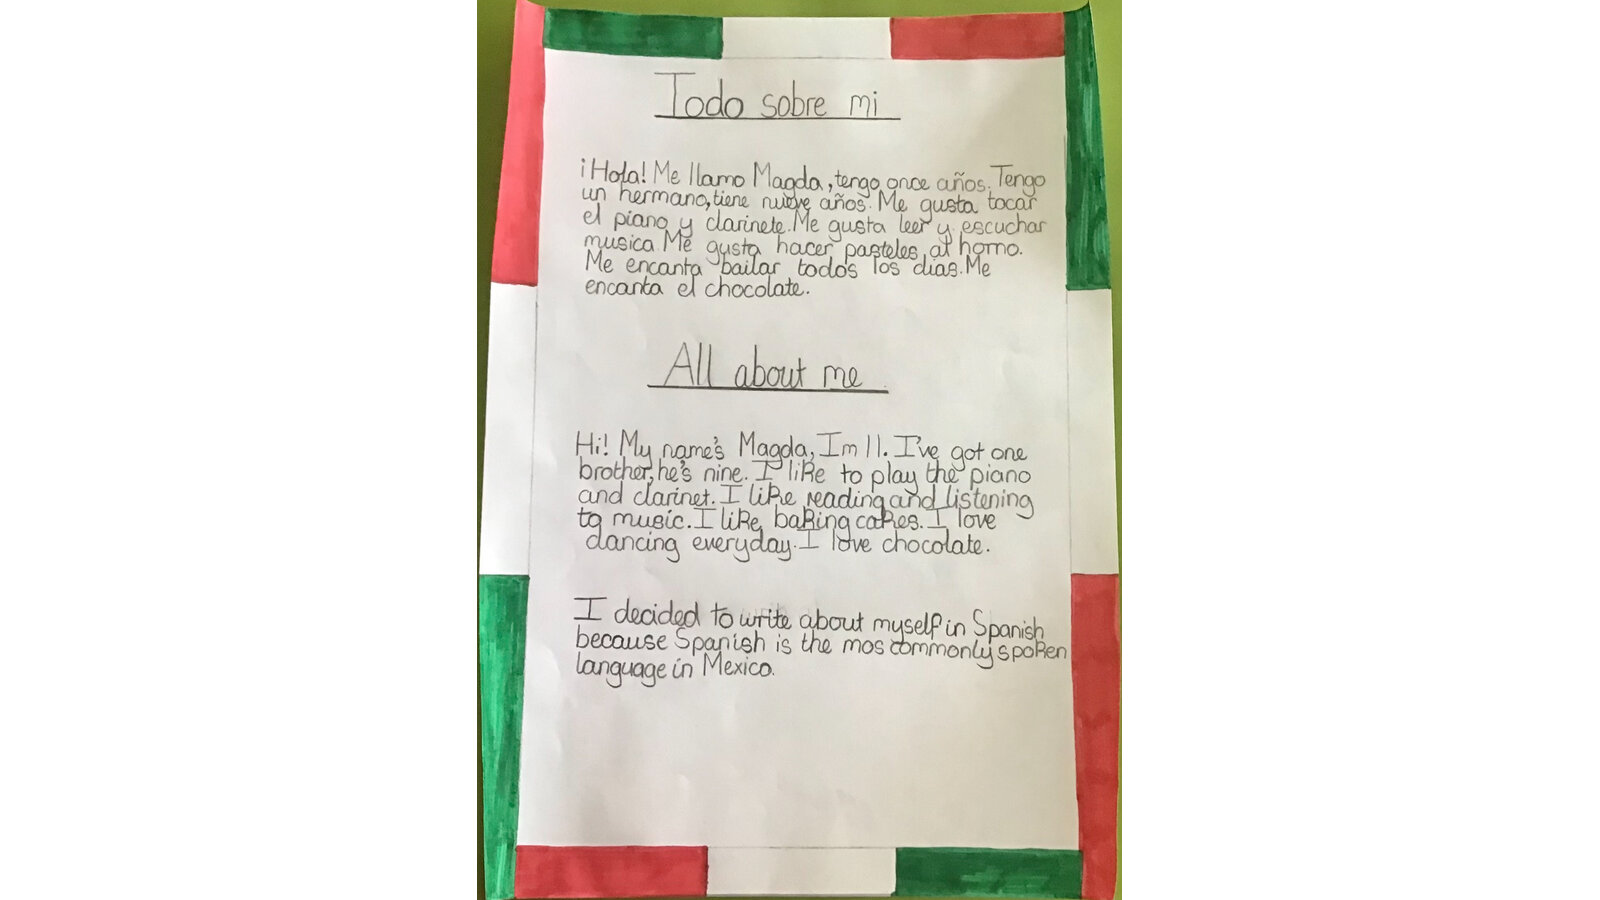 Todo sobre mi
¡Hola! Me llamo Magda, tengo once años. Tengo
un hermano, tiene nueve años. Me gusta tocar
el piano y clarinete. Me gusta leer y escuchar
musica. Me gusta hacer pasteles al horno.
Me encanta bailar todos los dias. Me
encanta el chocolate.
All about me
Hi! My name's Magda, Im 11. I've got one
brother, he's nine. I like to play the piano
and clarinet. I like reading and listening
to music. I like baking cakes. I love
dancing everyday. I love chocolate.
I decided to write about myself in Spanish
because Spanish is the mos commonly spoken
language in Mexico.